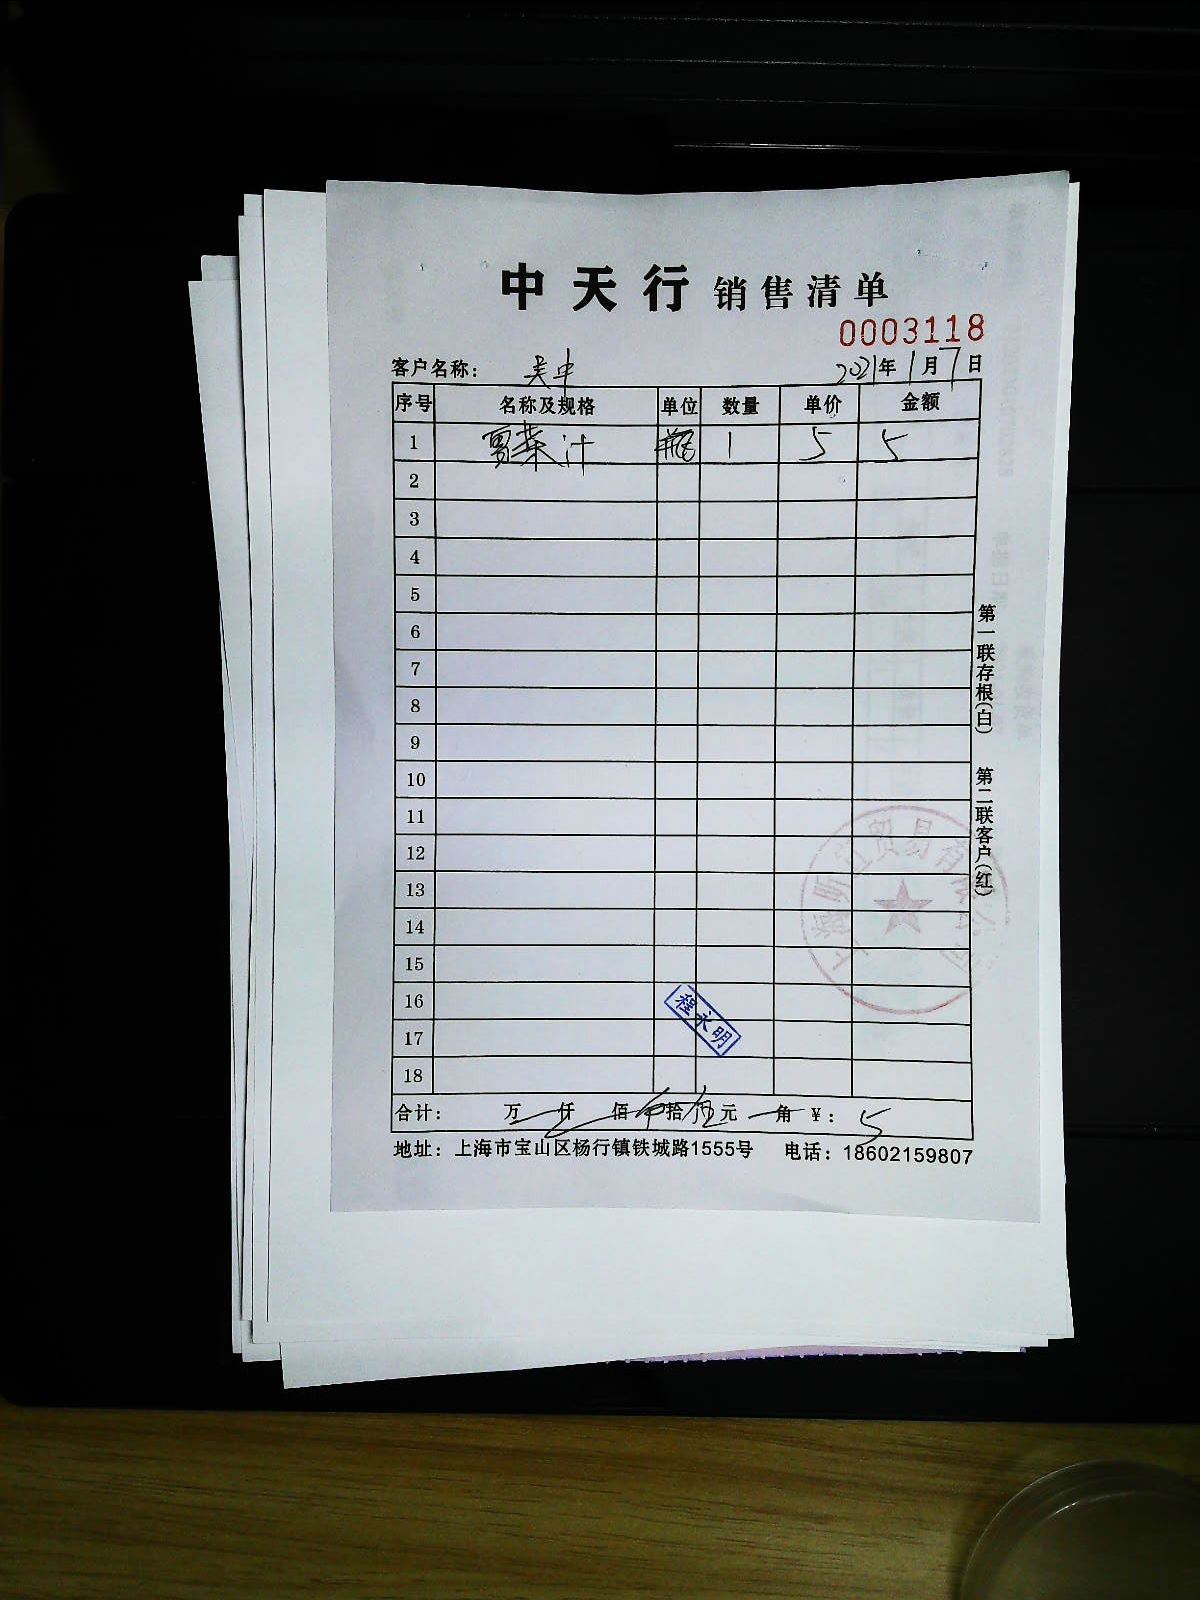 中天行 销售清单
0003118
客户名称： 吴中 2021年1月7日
序号 名称及规格 单位 数量 单价 金额
1 果汁 瓶 1 5 5
2
3
4
5
6
7
8
9
10
11
12
13
14
15
16
17
18
程永明
合计： 万 仟 佰 拾 伍元 角 ¥： 5
地址：上海市宝山区杨行镇铁城路1555号 电话：18602159807
第一联存根（白） 第二联客户（红）